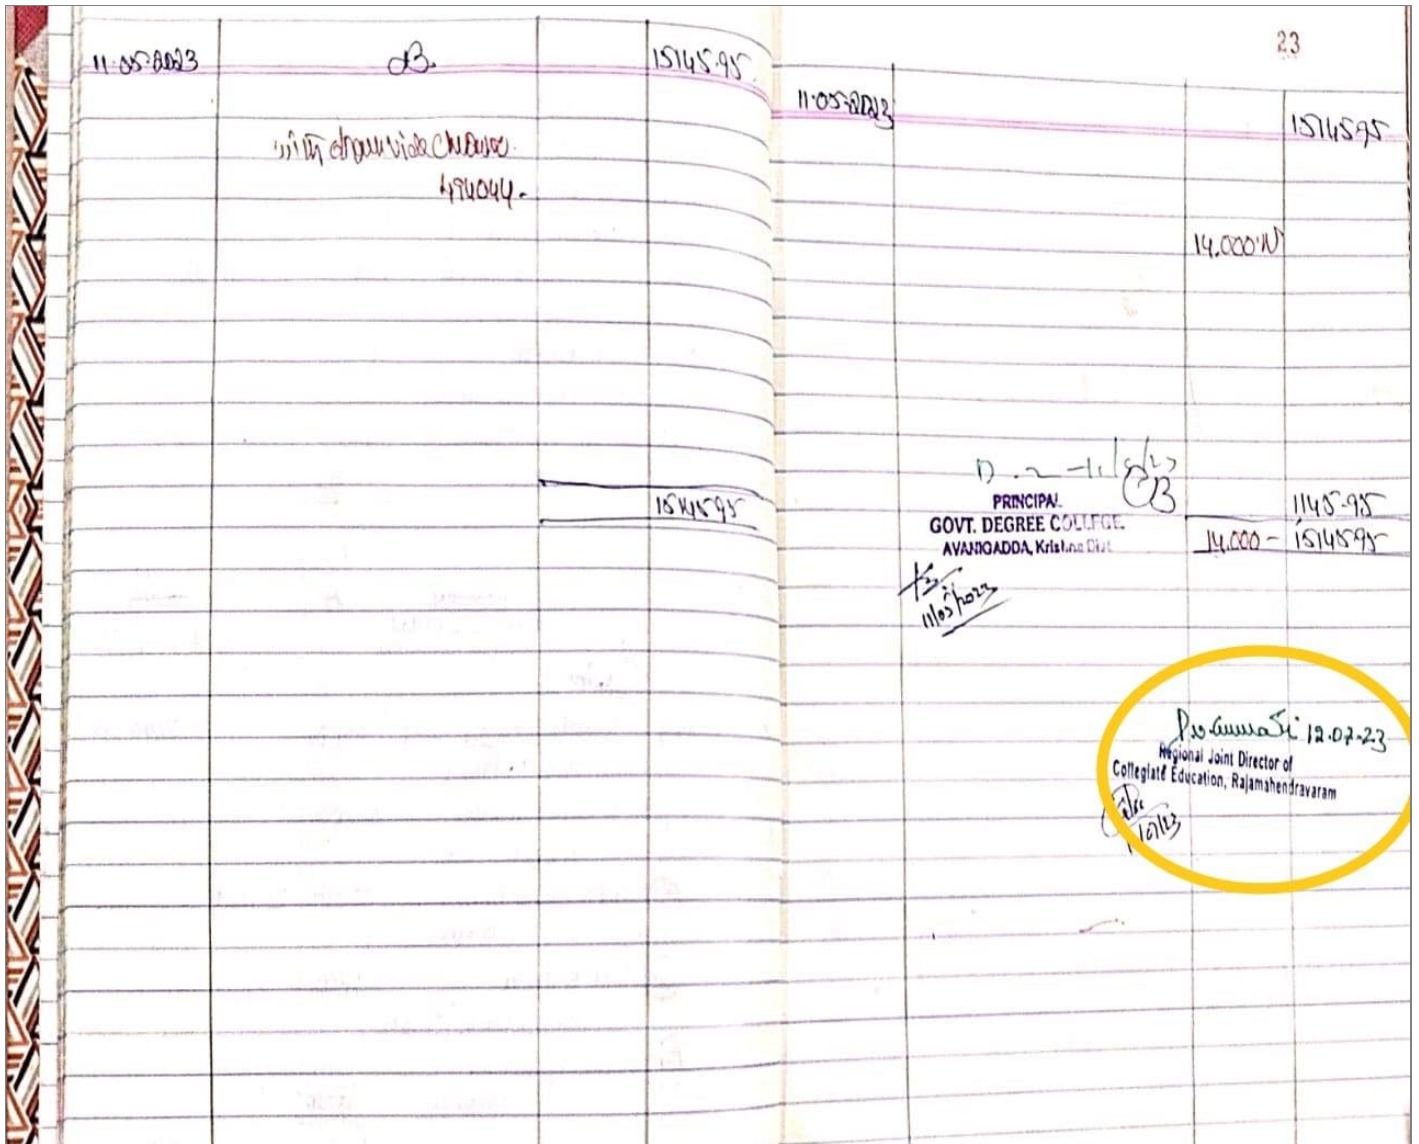 11-05-2023 OB. 15145.95
494044.
15145.95
23
11.05.2023
15145.95
14.000.00
PRINCIPAL
GOVT. DEGREE COLLEGE
AVANIGADDA, Krishna Dist
11/05/2023
CB 1145.95
14.000- 15145.95
12.07.23
Regional Joint Director of
Collegiate Education, Rajamahendravaram